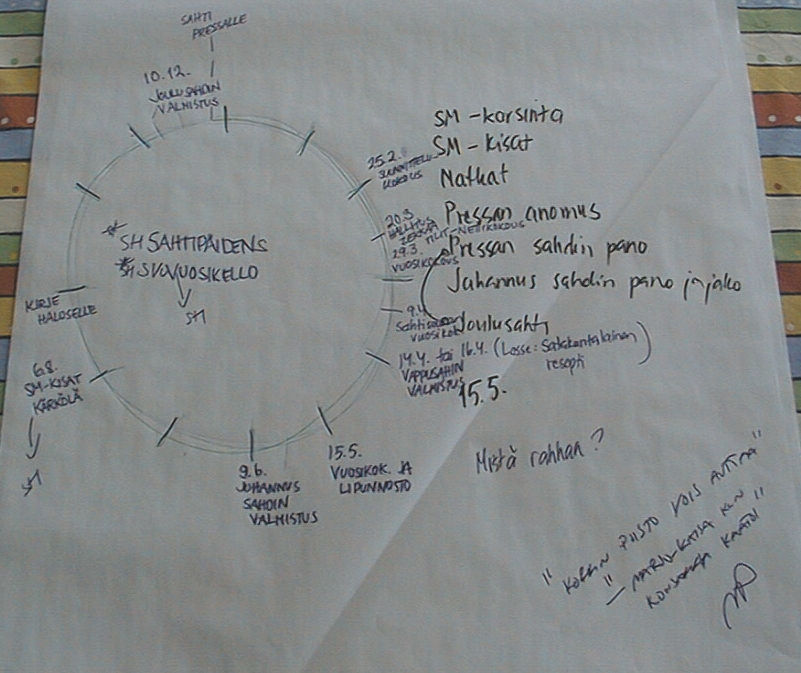 SAHTI
PRESSALLE
10.12.
JOULUSAHDIN
VALMISTUS
25.2.
SUUNNITTELU-
KOKOUS
20.3
HALLITUS
29.3. TILIT-NETTIKOKOUS
VUOSIKOKOUS
9.4.
Sahtiseuran
VUOSIKOK
14.4. tai 16.4. (Lasse: Satakuntalainen
resepti)
VAPPUSAHIN
VALMISTUS
15.5.
VUOSIKOK. JA
LIPUNNOSTO
9.6.
JUHANNUS
SAHDIN
VALMISTUS
6.8.
SM-KISAT
KÄRKÖLÄ
KIRJE
HALOSELLE
SH SAHTIPÄIDENS
SH SVUOSIKELLO
SM-karsinta
SM-kisat
Matkat
Pressan anomus
Pressan sahdin pano
Juhannus sahdin pano ja jako
Joulusahti
15.5.
Mistä rahhan?
" KOLEHN PIISTO VOIS AUTTAA"
"
KUN
KONSANSA KAATOI "